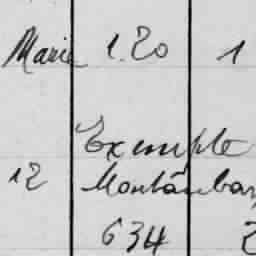 Marie 1.20 1
Exemple
12 Montauban
634 2